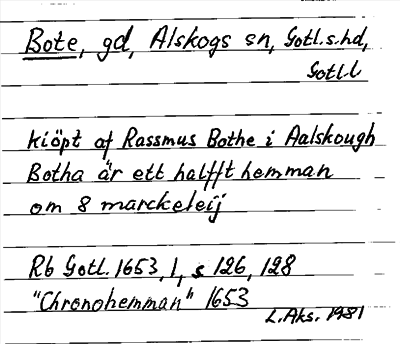 Bote, gd, Alskogs sn, Gotl.s.hd,
Gotl.l
kiöpt af Rassmus Bothe i Aalskough
Botha är ett halfft hemman
om 8 marckeleij
Rb Gotl. 1653, 1, s 126, 128
"Chronohemman" 1653
L.Aks. 1981